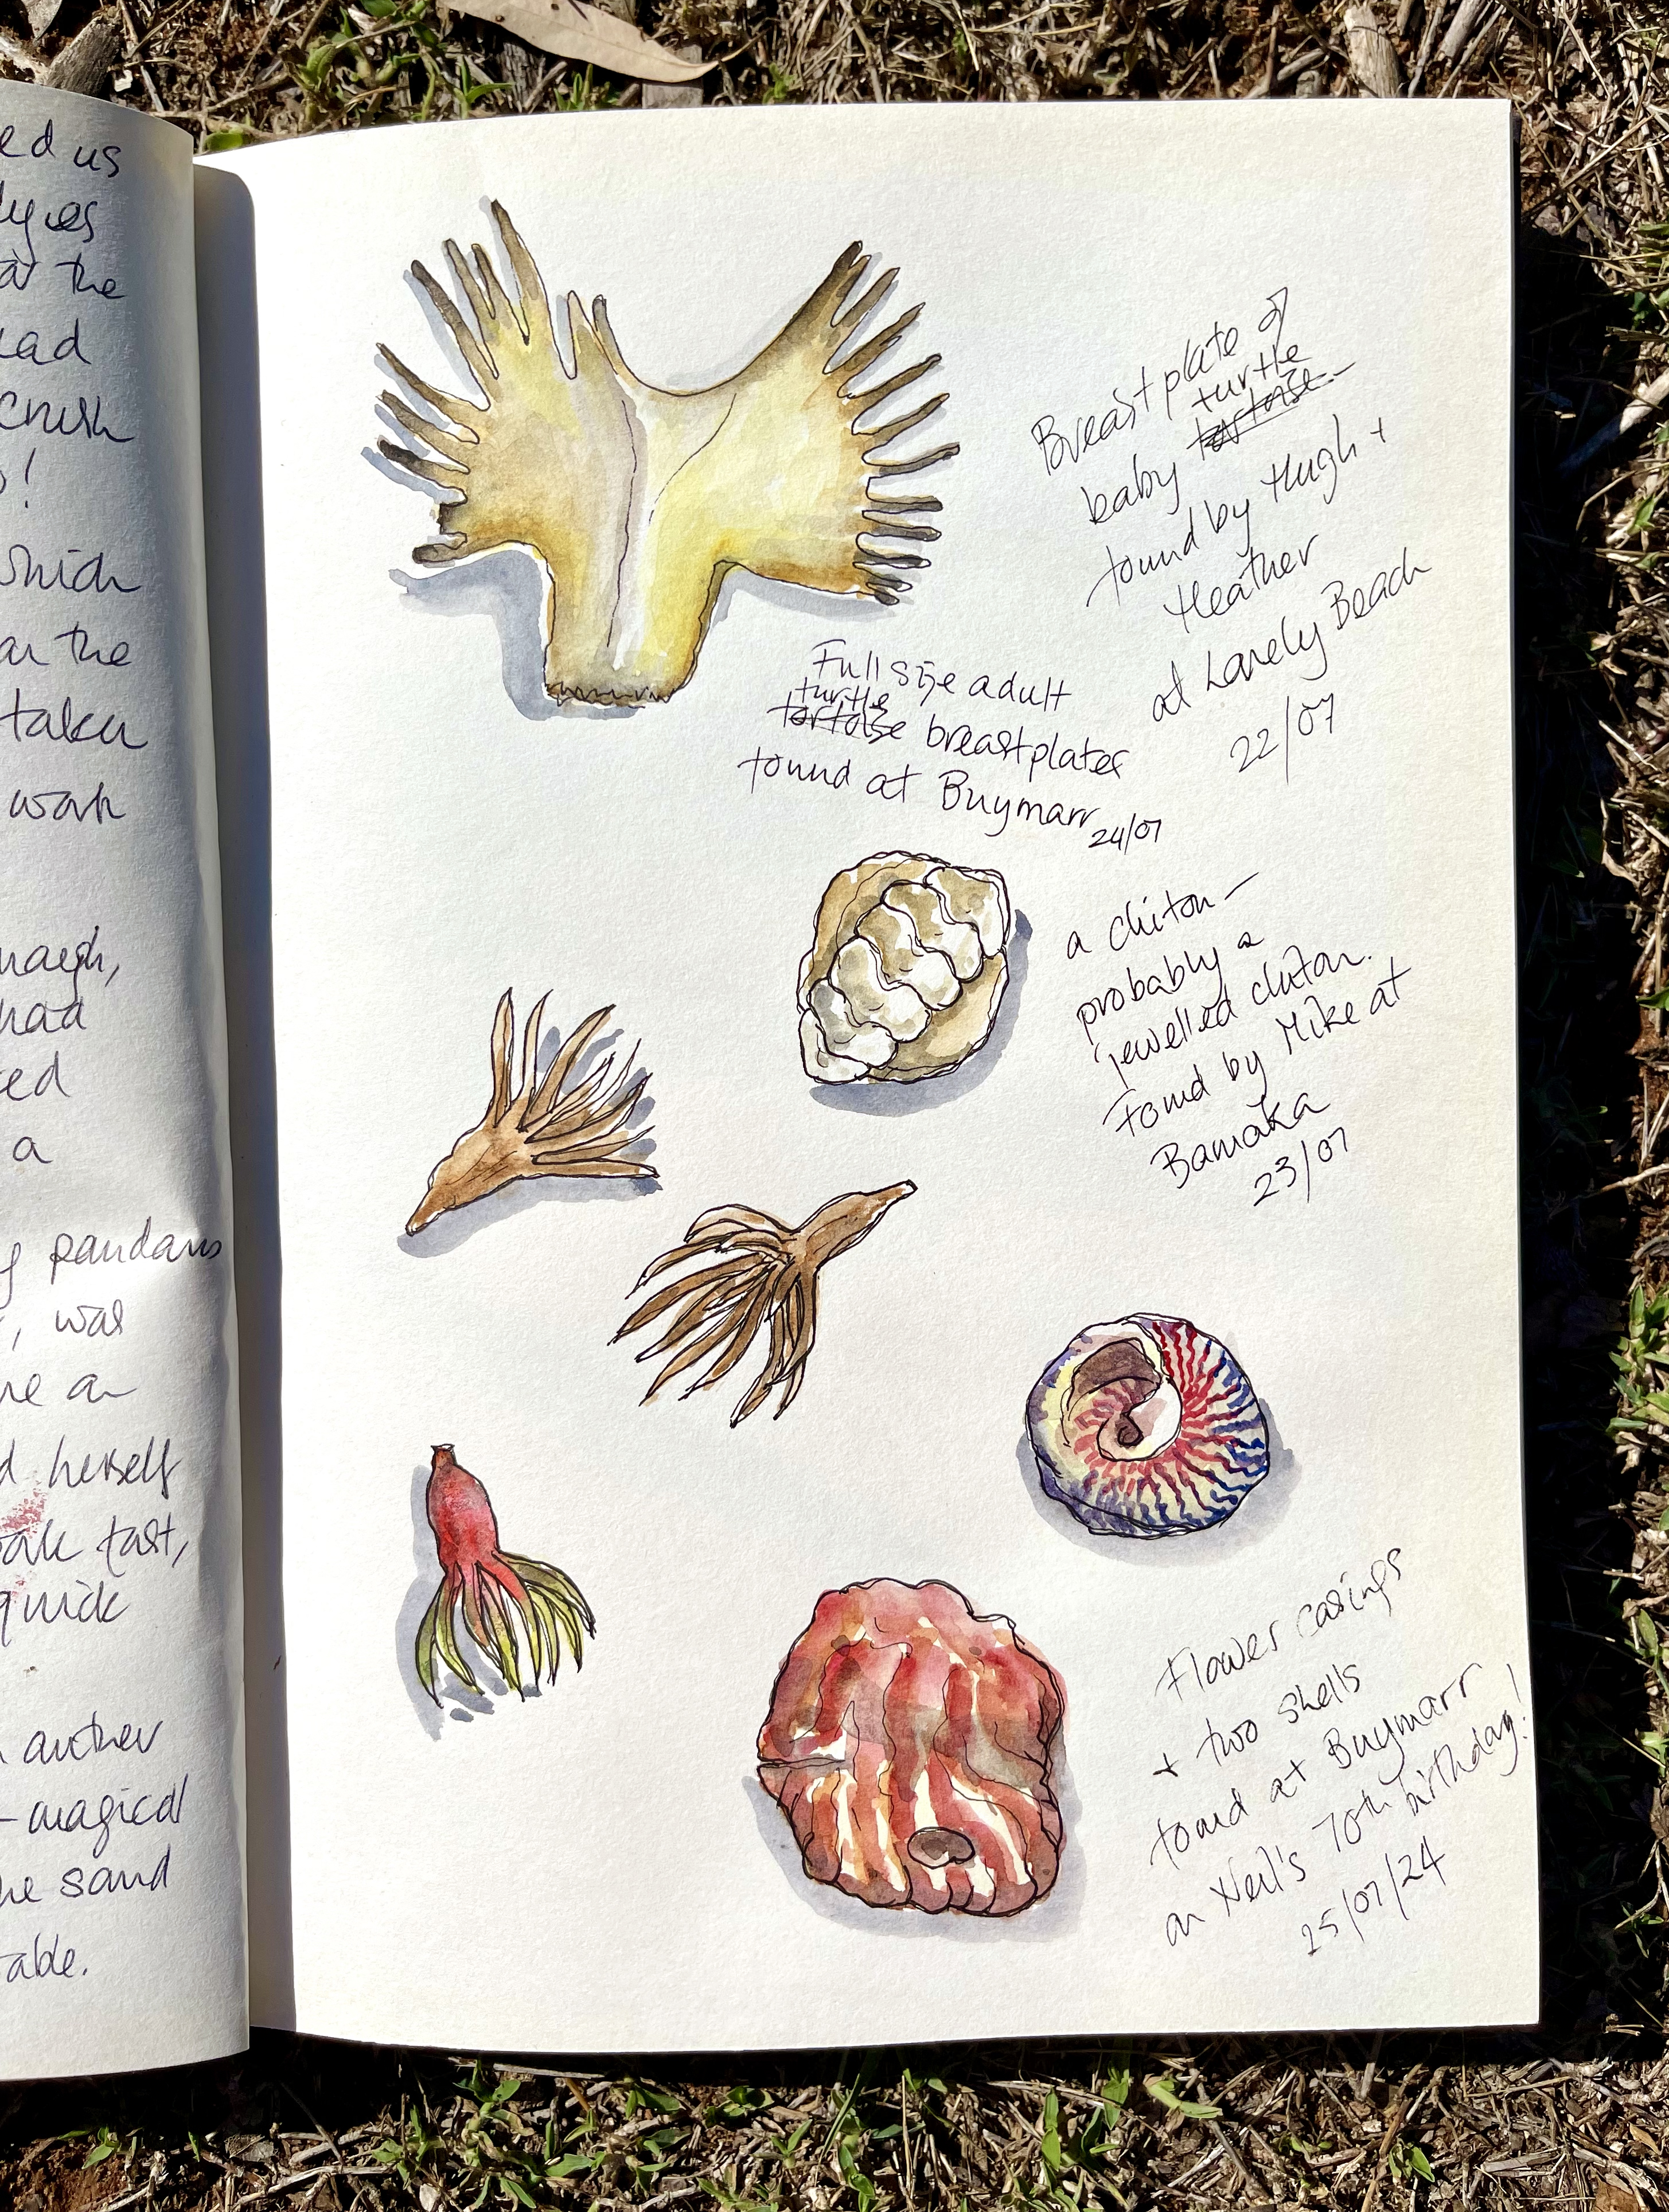 ed us
at the
crush
!
which
an the
taken
work
had
a
pandanus
, was
herself
fast,
quick
another
- magical
he sand
able.
Breastplate of
turtle
baby tortoise
found by Hugh +
Heather
at Lonely Beach
22/07
Full size adult
turtle
tortoise breastplates
found at Buymarr
24/07
a chiton -
probably a
jewelled chiton.
Found by Mike at
Bamaka
23/07
Flower casings
+ two shells
found at Buymarr
on Neil's 70th birthday!
25/07/24